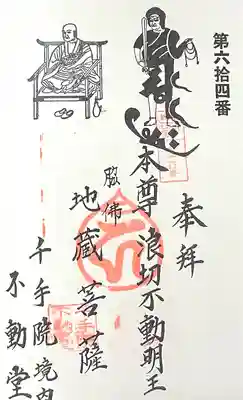 第六拾四番
奉拝
本尊 浪切不動明王
脇佛
地蔵菩薩
千手院境内
不動堂